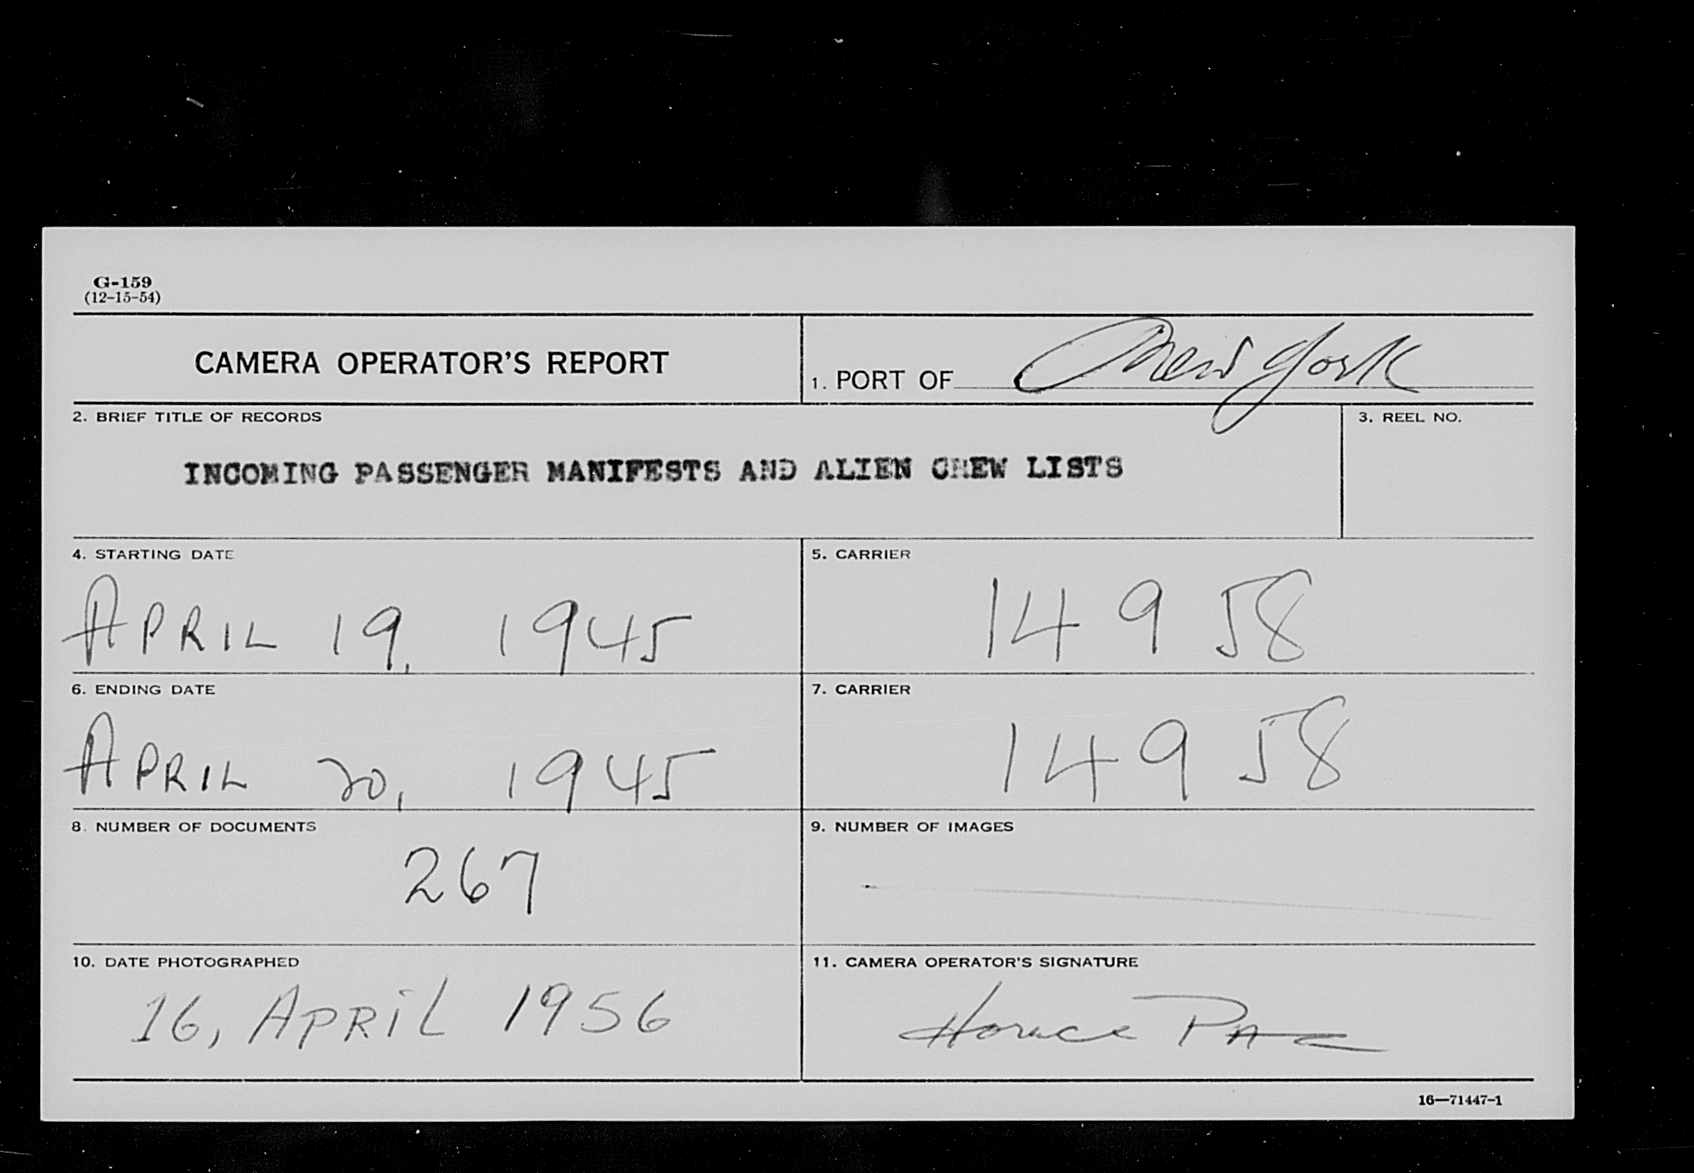 G-159
(12-15-54)
CAMERA OPERATOR'S REPORT
1. PORT OF New York
2. BRIEF TITLE OF RECORDS
3. REEL NO.
INCOMING PASSENGER MANIFESTS AND ALIEN CREW LISTS
4. STARTING DATE
5. CARRIER
APRIL 19, 1945
14958
6. ENDING DATE
7. CARRIER
APRIL 20, 1945
14958
8. NUMBER OF DOCUMENTS
9. NUMBER OF IMAGES
267
10. DATE PHOTOGRAPHED
11. CAMERA OPERATOR'S SIGNATURE
16, APRIL 1956
Horace
16—71447-1